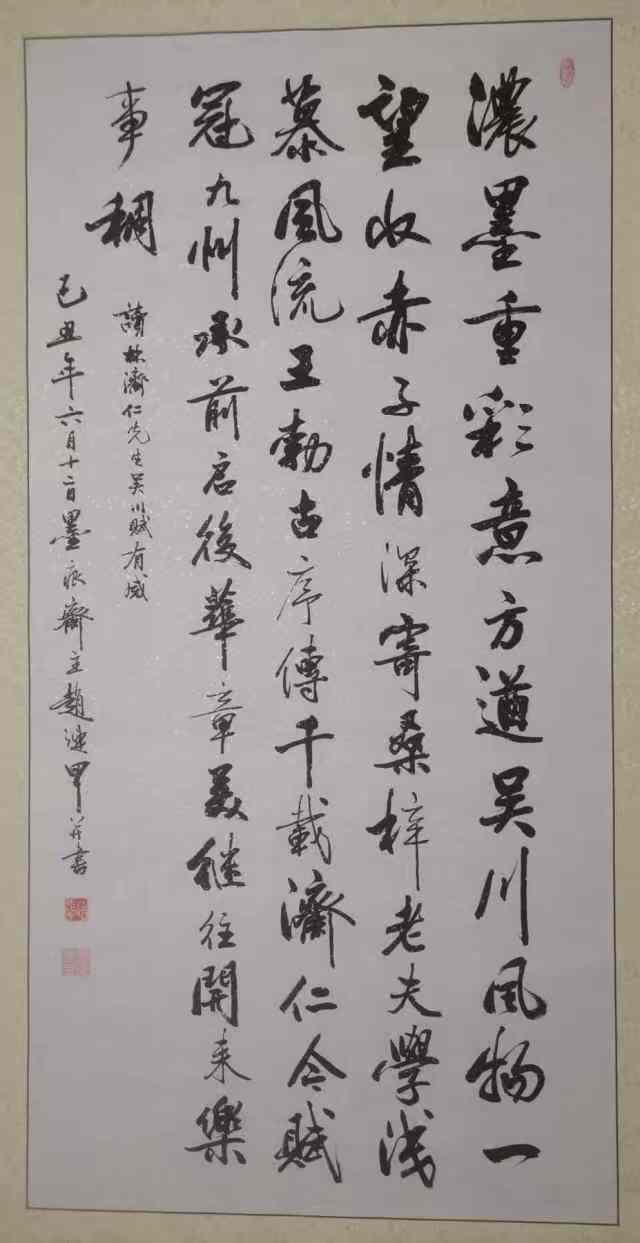 濃墨重彩意方遒吴川風物一
望收赤子情深寄桑梓老夫學浅
慕風流王勃古序傳千載濟仁今賦
冠九州承前启後華章美继往開来樂
事稠
讀林濟仁先生吴川賦有感
己丑年六月十二日墨痕齋主趙連甲并書